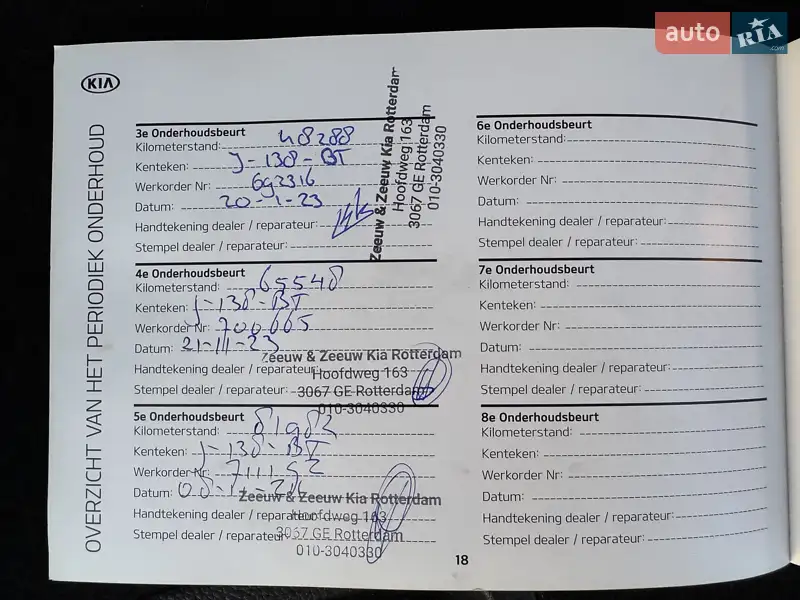 auto RIA.com
KIA
OVERZICHT VAN HET PERIODIEK ONDERHOUD
3e Onderhoudsbeurt
Kilometerstand: 48288
Kenteken: J-138-BT
Werkorder Nr: 692316
Datum: 20-1-23
Handtekening dealer / reparateur:
Stempel dealer / reparateur:
Zeeuw & Zeeuw Kia Rotterdam
Hoofdweg 163
3067 GE Rotterdam
010-3040330
4e Onderhoudsbeurt
Kilometerstand: 65548
Kenteken: J-138-BT
Werkorder Nr: 700665
Datum: 21-11-23
Handtekening dealer / reparateur:
Stempel dealer / reparateur:
Zeeuw & Zeeuw Kia Rotterdam
Hoofdweg 163
3067 GE Rotterdam
010-3040330
5e Onderhoudsbeurt
Kilometerstand: 81982
Kenteken: J-138-BT
Werkorder Nr:
Datum:
Handtekening dealer / reparateur:
Stempel dealer / reparateur:
Zeeuw & Zeeuw Kia Rotterdam
Hoofdweg 163
3067 GE Rotterdam
010-3040330
6e Onderhoudsbeurt
Kilometerstand:
Kenteken:
Werkorder Nr:
Datum:
Handtekening dealer / reparateur:
Stempel dealer / reparateur:
7e Onderhoudsbeurt
Kilometerstand:
Kenteken:
Werkorder Nr:
Datum:
Handtekening dealer / reparateur:
Stempel dealer / reparateur:
8e Onderhoudsbeurt
Kilometerstand:
Kenteken:
Werkorder Nr:
Datum:
Handtekening dealer / reparateur:
Stempel dealer / reparateur:
18